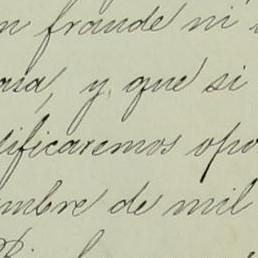 n fraude ni
asa, y que si
dificaremos opo
mbre de mil